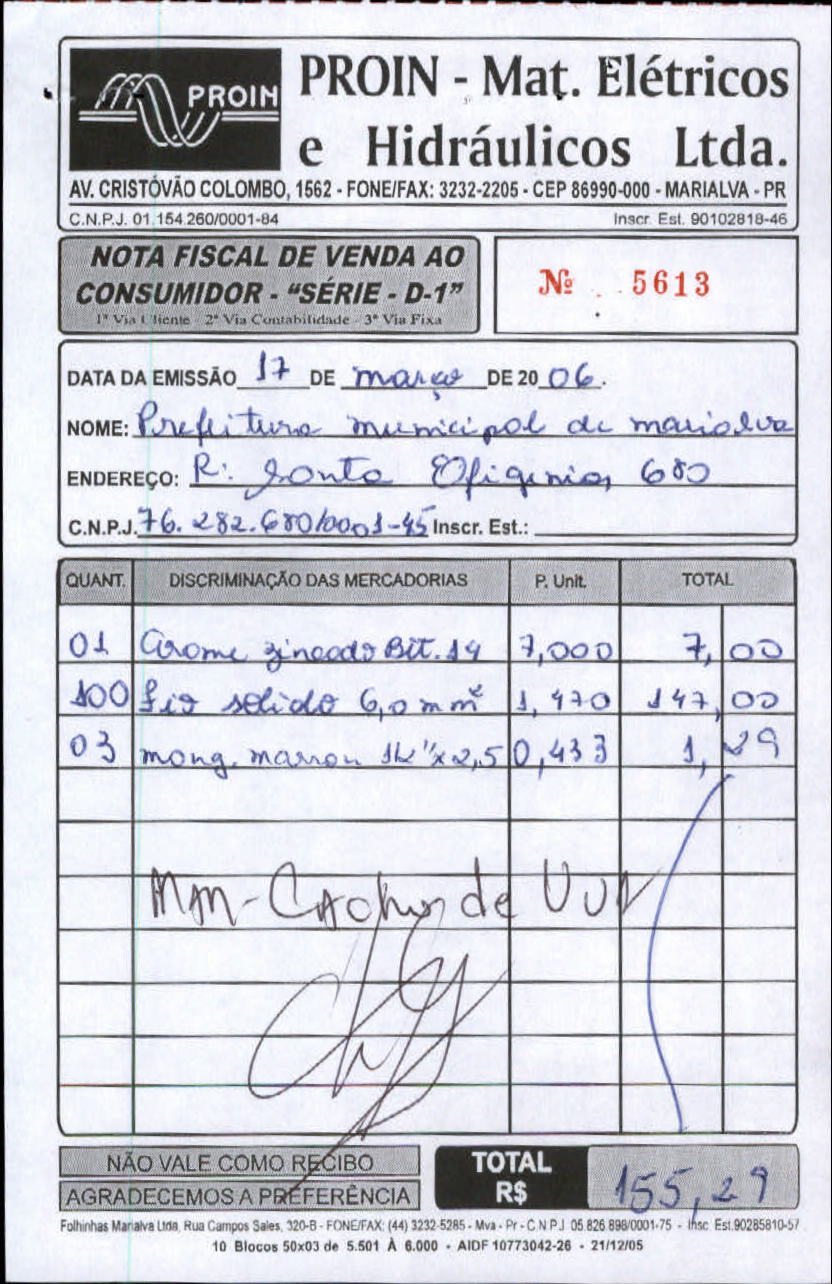 PROIN
PROIN - Mat. Elétricos
e Hidráulicos Ltda.
AV. CRISTÓVÃO COLOMBO, 1562 - FONE/FAX: 3232-2205 - CEP 86990-000 - MARIALVA - PR
C.N.P.J. 01.154.260/0001-84 Inscr. Est. 90102818-46
NOTA FISCAL DE VENDA AO
CONSUMIDOR - "SÉRIE - D-1"
1ª Via Cliente - 2ª Via Contabilidade - 3ª Via Fixa
Nº 5613
DATA DA EMISSÃO 17 DE março DE 20 06.
NOME: Prefeitura municipal de marialva
ENDEREÇO: R: Santa Efigenia, 680
C.N.P.J. 76.282.680/0001-45 Inscr. Est.:
QUANT. DISCRIMINAÇÃO DAS MERCADORIAS P. Unit. TOTAL
01 Arame zincado Bit. 14 7,000 7,00
100 fio solido 6,0 mm² 1,470 147,00
03 mang. marron 1/2"x2,5 0,433 1,29
de
NÃO VALE COMO RECIBO
AGRADECEMOS A PREFERÊNCIA
TOTAL
R$ 155,29
Folhinhas Marialva Ltda, Rua Campos Sales, 320-B - FONE/FAX: (44) 3232-5285 - Mva - Pr - C.N.P.J. 05.826.898/0001-75 - Insc. Est.90285810-57
10 Blocos 50x03 de 5.501 À 6.000 - AIDF 10773042-26 - 21/12/05